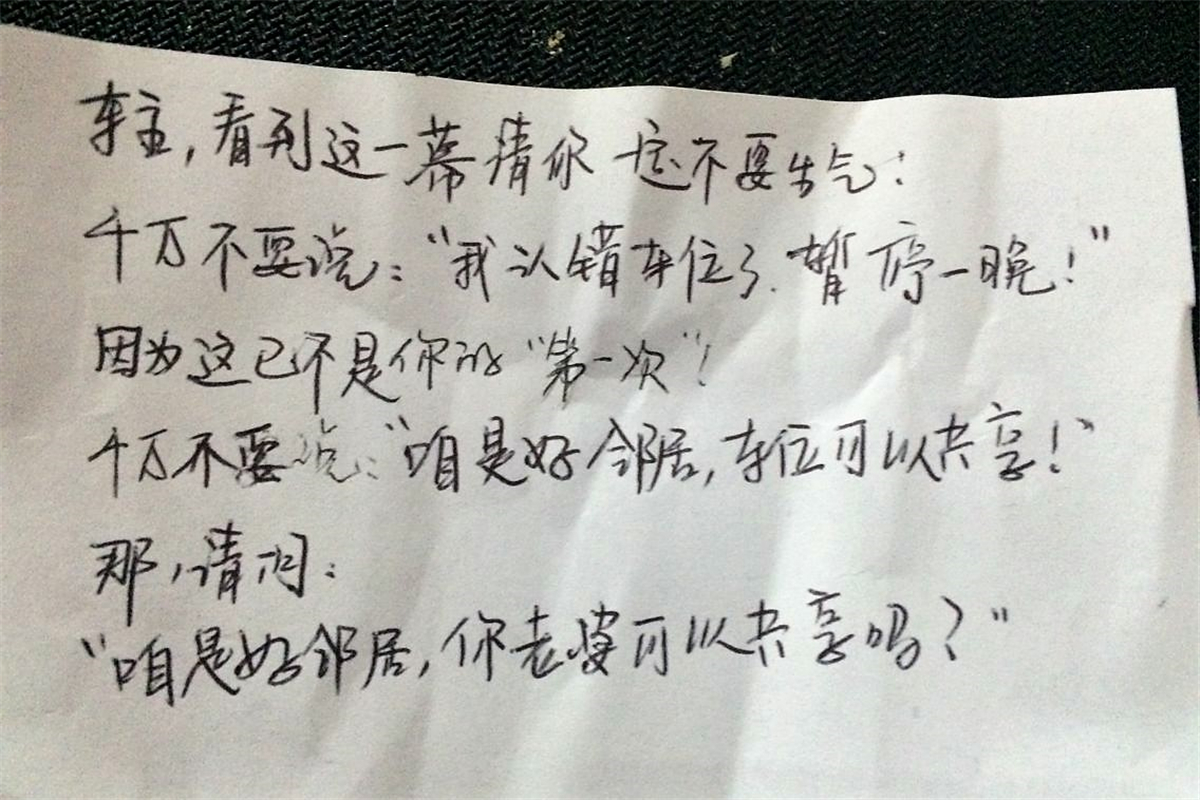 车主,看到这一幕请你一定不要生气!
千万不要说:“我认错车位了.暂停一晚!”
因为这已不是你的“第一次”!
千万不要说:“咱是好邻居,车位可以共享!”
那,请问:
“咱是好邻居,你老婆可以共享吗?”